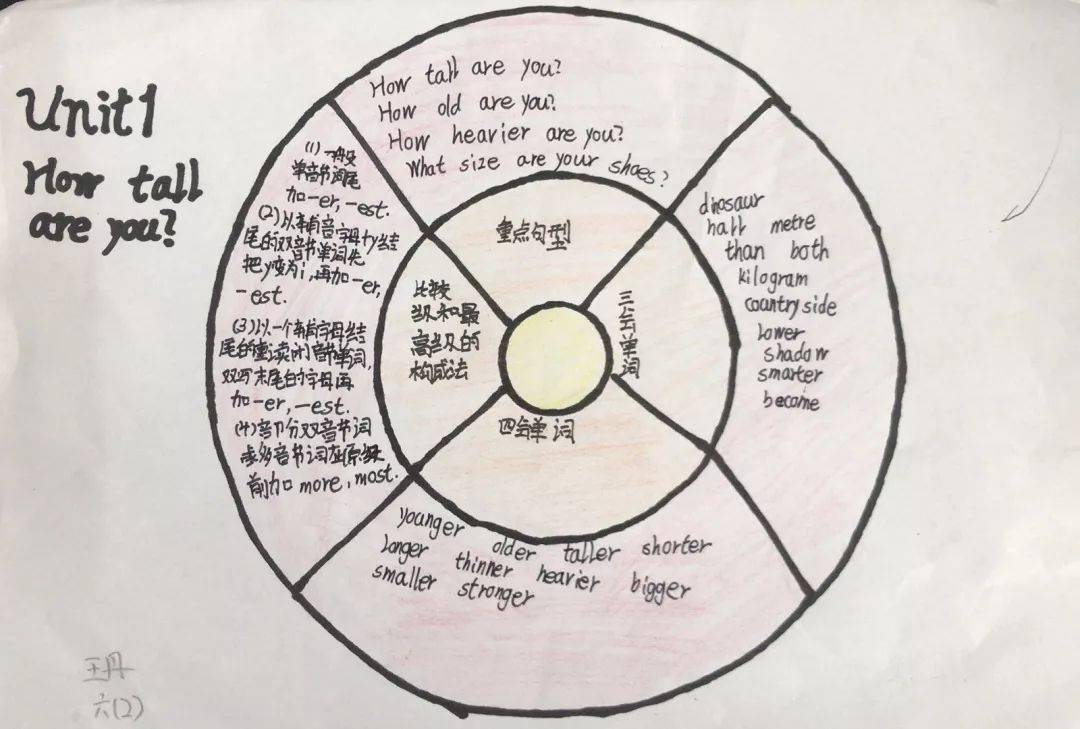 Unit1
How tall
are you?
How tall are you?
How old are you?
How heavier are you?
What size are your shoes?
重点句型
(1) 一般
单音节词尾
加-er, -est.
(2)以辅音字母+y结
尾的双音节单词先
把y变为i,再加-er,
-est.
(3)以一个辅音字母结
尾的重读闭音节单词,
双写末尾的字母再
加-er, -est.
(4)部分双音节词
多音节词在原级
前加 more, most.
比较
级和最
高级的
构成法
三会单词
dinosaur
hall metre
than both
kilogram
countryside
lower
shadow
smarter
become
四会单词
younger older taller shorter
longer thinner heavier bigger
smaller stronger
王丹
六(2)